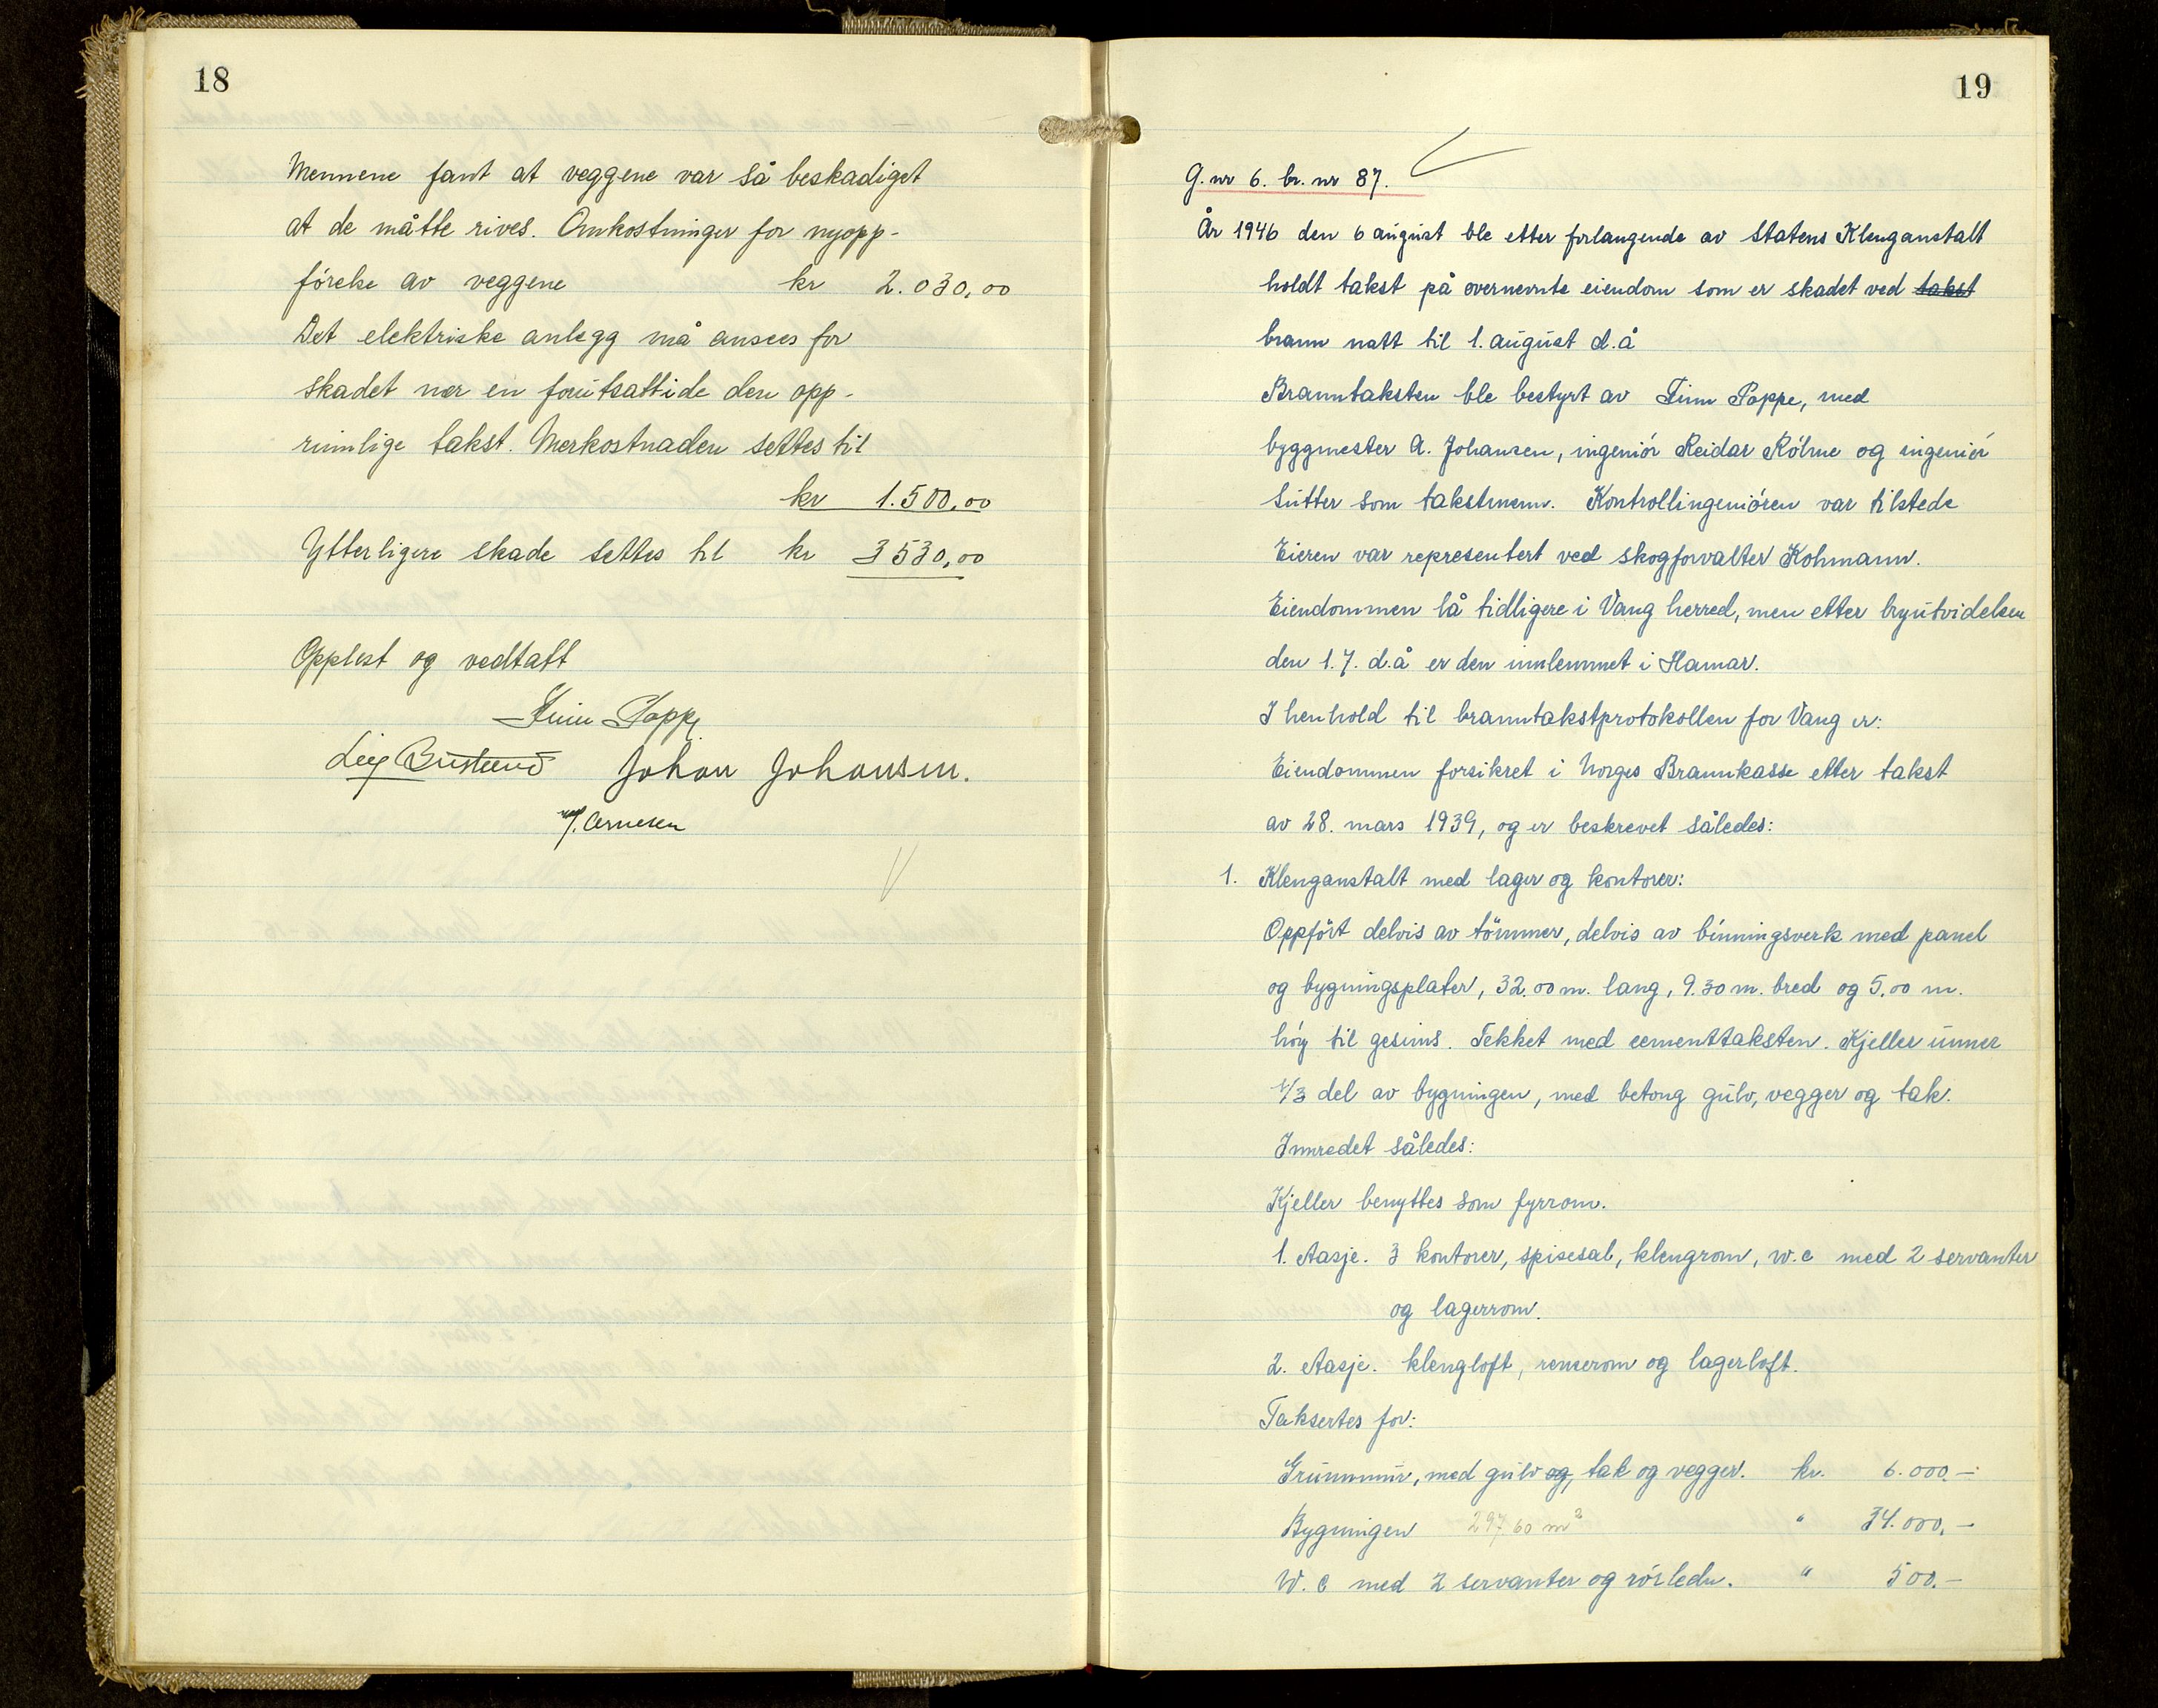 18
Mennene fant at veggene var så beskadiget
at de måtte rives. Omkostninger for nyopp-
førelse av veggene kr 2.030,00
Det elektriske anlegg må ansees for
skadet mer en forutsatt i de den opp-
rinnlige takst. Merkostnaden settes til
kr 1.500,00
Ytterligere skade settes til kr 3530,00
Opplest og vedtatt
Finn Poppe
Leif Johan Johansen.
Arnesen
19
G. nr 6. br. nr 87.
År 1946 den 6 august ble etter forlangende av Statens Klenganstalt
holdt takst på overnevnte eiendom som er skadet ved takst
brann natt til 1. august d.å
Branntaksten ble bestyrt av Finn Poppe, med
byggmester A. Johansen, ingeniör Reidar Röhne og ingeniör
Sutter som takstmenn. Kontrollingeniören var tilstede
Eieren var representert ved skogforvalter Kohmann.
Eiendommen lå tidligere i Vang herred, men etter byutvidelsen
den 1.7. d.å er den innlemmet i Hamar.
I henhold til branntakstprotokollen for Vang er:
Eiendommen forsikret i Norges Brannkasse etter takst
av 28. mars 1939, og er beskrevet således:
1. Klenganstalt med lager og kontorer:
Oppfört delvis av tömmer, delvis av binningsverk med panel
og bygningsplater, 32.00 m. lang, 9.30 m. bred og 5.00 m.
höy til gesims. Tekket med cementtaksten. Kjeller unner
1/3 del av bygningen, med betong gulv, vegger og tak.
Innredet således:
Kjeller benyttes som fyrrom.
1. etasje. 3 kontorer, spisesal, klengrom, w.c med 2 servanter
og lagerrom.
2. etasje. klengloft, renserom og lagerloft.
Taksertes for:
Grunnmur, med gulv og, tak og vegger. kr. 6.000.-
Bygningen 297 60 m² " 34.000.-
W. C med 2 servanter og rörledn. " 500.-